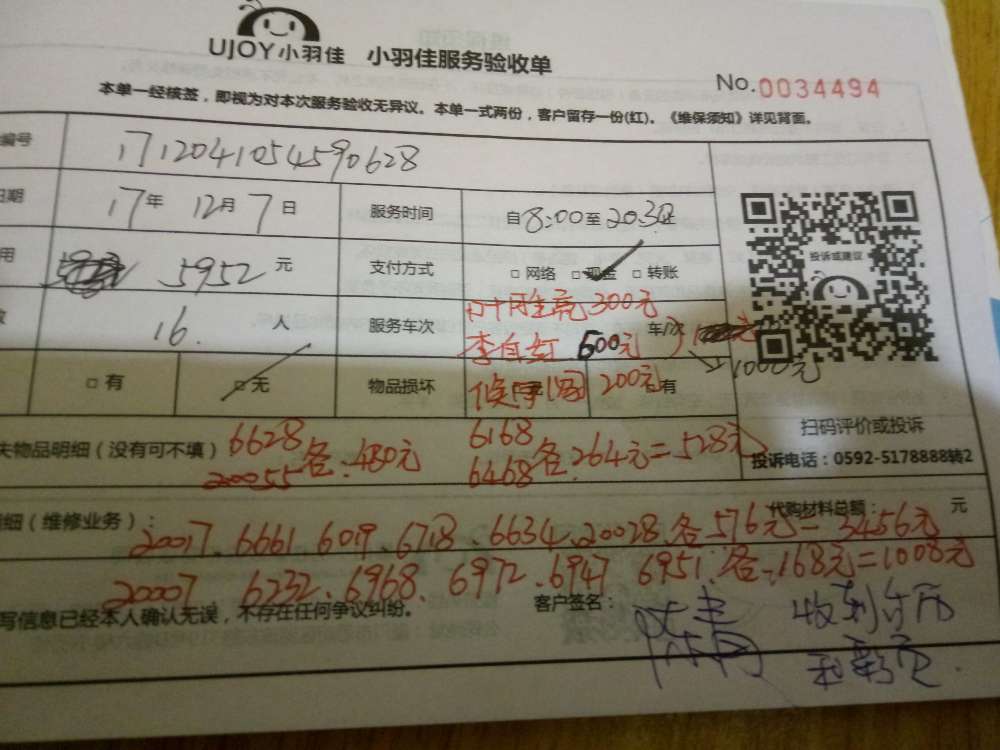 UJOY小羽佳 小羽佳服务验收单
No.0034494
本单一经核签，即视为对本次服务验收无异议。本单一式两份，客户留存一份(红)。《维保须知》详见背面。
编号 1712041054590628
日期 17年 12月 7日 服务时间 自8:00至20:30止
用 5952元 支付方式 □网络 □现金 □转账
投诉或建议
300元
16.人 服务车次 李自红 600元 车/次
1000元
□有 □无 物品损坏 200元 有
扫码评价或投诉
失物品明细（没有可不填） 6628 20055 各:480元 6168 6468 各264元=528元
投诉电话：0592-5178888转2
代购材料总额： 元
明细（维修业务）：
20017、6661、6019、6718、6634、20028、各576元=3456元
20007 6232、6968、6972、6947 6951、各168元=1008元
写信息已经本人确认无误，不存在任何争议纠纷。 客户签名：
收到